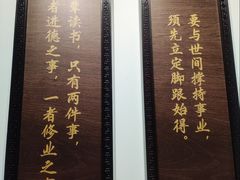 要与世间撑持事业，
须先立定脚跟始得。
辈读书，只有两件事，
者进德之事，一者修业之